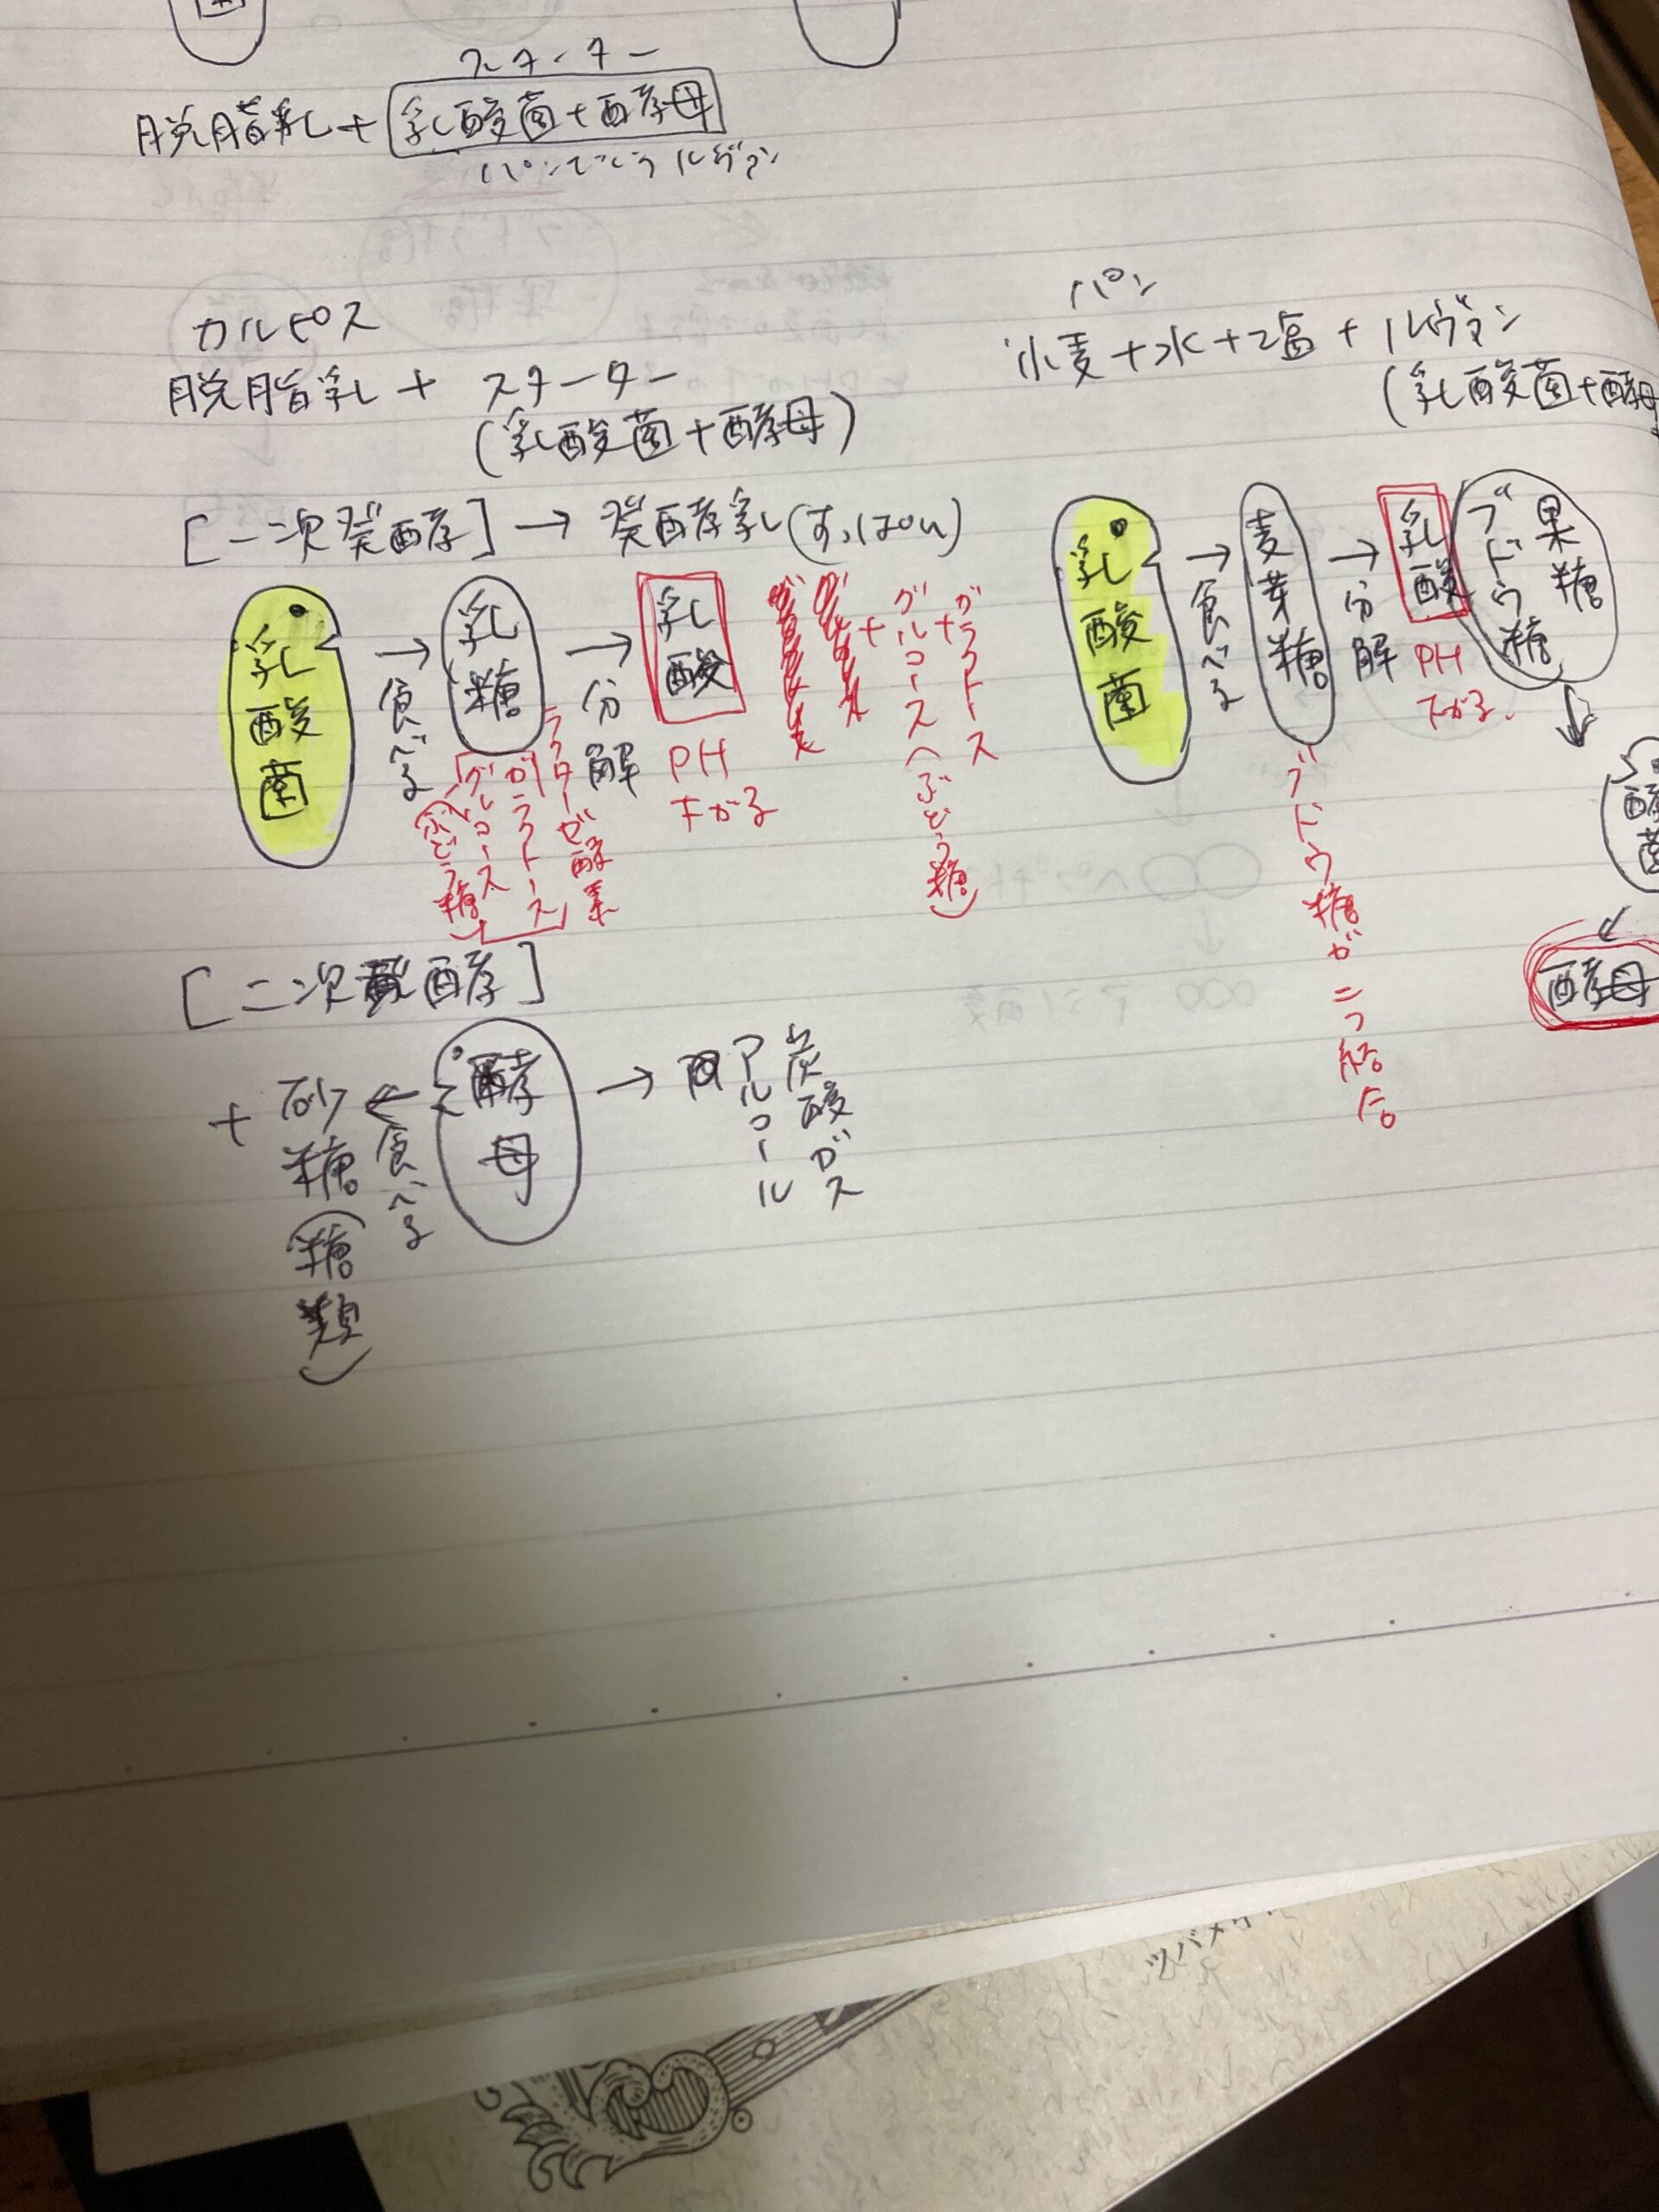 スターター
脱脂乳+乳酸菌+酵母
パンでいうルヴァン
カルピス
脱脂乳+スターター
(乳酸菌+酵母)
[一次発酵]→発酵乳(すっぱい)
乳酸菌
→
食べる
乳糖
→
分解
乳酸
PH
下がる
+
グルコース(ぶどう糖)
+
ガラクトス
ラクターゼ酵素
ガラクトース
グルコース
(ぶどう糖)
[二次発酵]
+
砂糖(糖類)
←
食べる
酵母
→
アルコール
炭酸ガス
パン
小麦+水+塩+ルヴァン
(乳酸菌+酵母
乳酸菌
→
食べる
麦芽糖
→
分解
乳酸
PH
下がる.
果糖
ブドウ糖
ブドウ糖が二つ結合
酵母
ツバメ